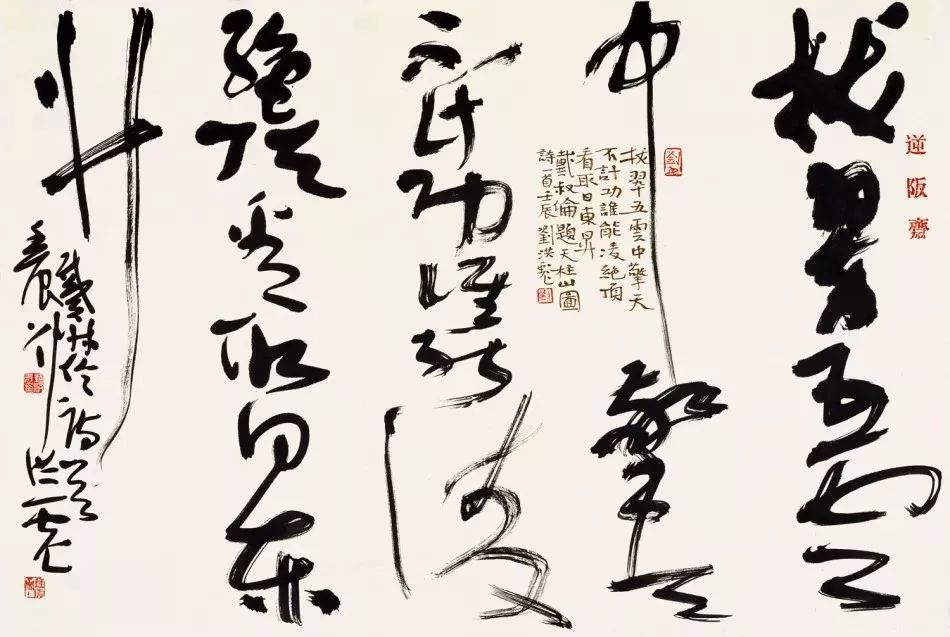 逆阪齋
拔翠五雲
中擎天
不計功誰能凌
絕頂看取日東
升
拔翠五雲中擎天
不計功誰能凌絕頂
看取日東昇
戴叔倫題天柱山圖
詩一首壬辰劉洪彪
戴叔倫詩洪彪
壬辰